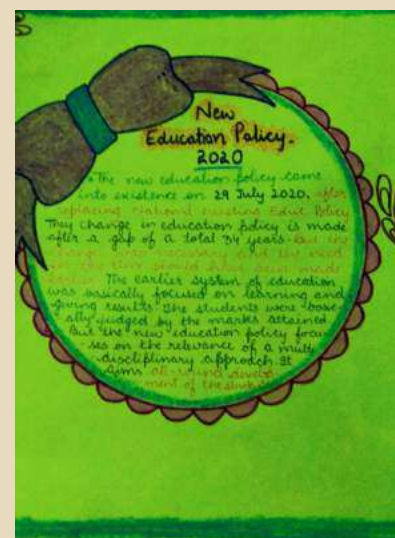 New
Education Policy.
2020
The new education policy came
into existence on 29 July 2020, after
replacing national existing Educt Policy
They change in education policy is made
after a gap of a total 34 years but the
change was necessary and the need
for the time should have been made
earlier. The earlier system of education
was basically focused on learning and
giving results. The students were base
ally judged by the marks attained
But the new education policy focu
ses on the relevance of a multi
discliplinary approach. It
Aims all-round develop
ment of the students